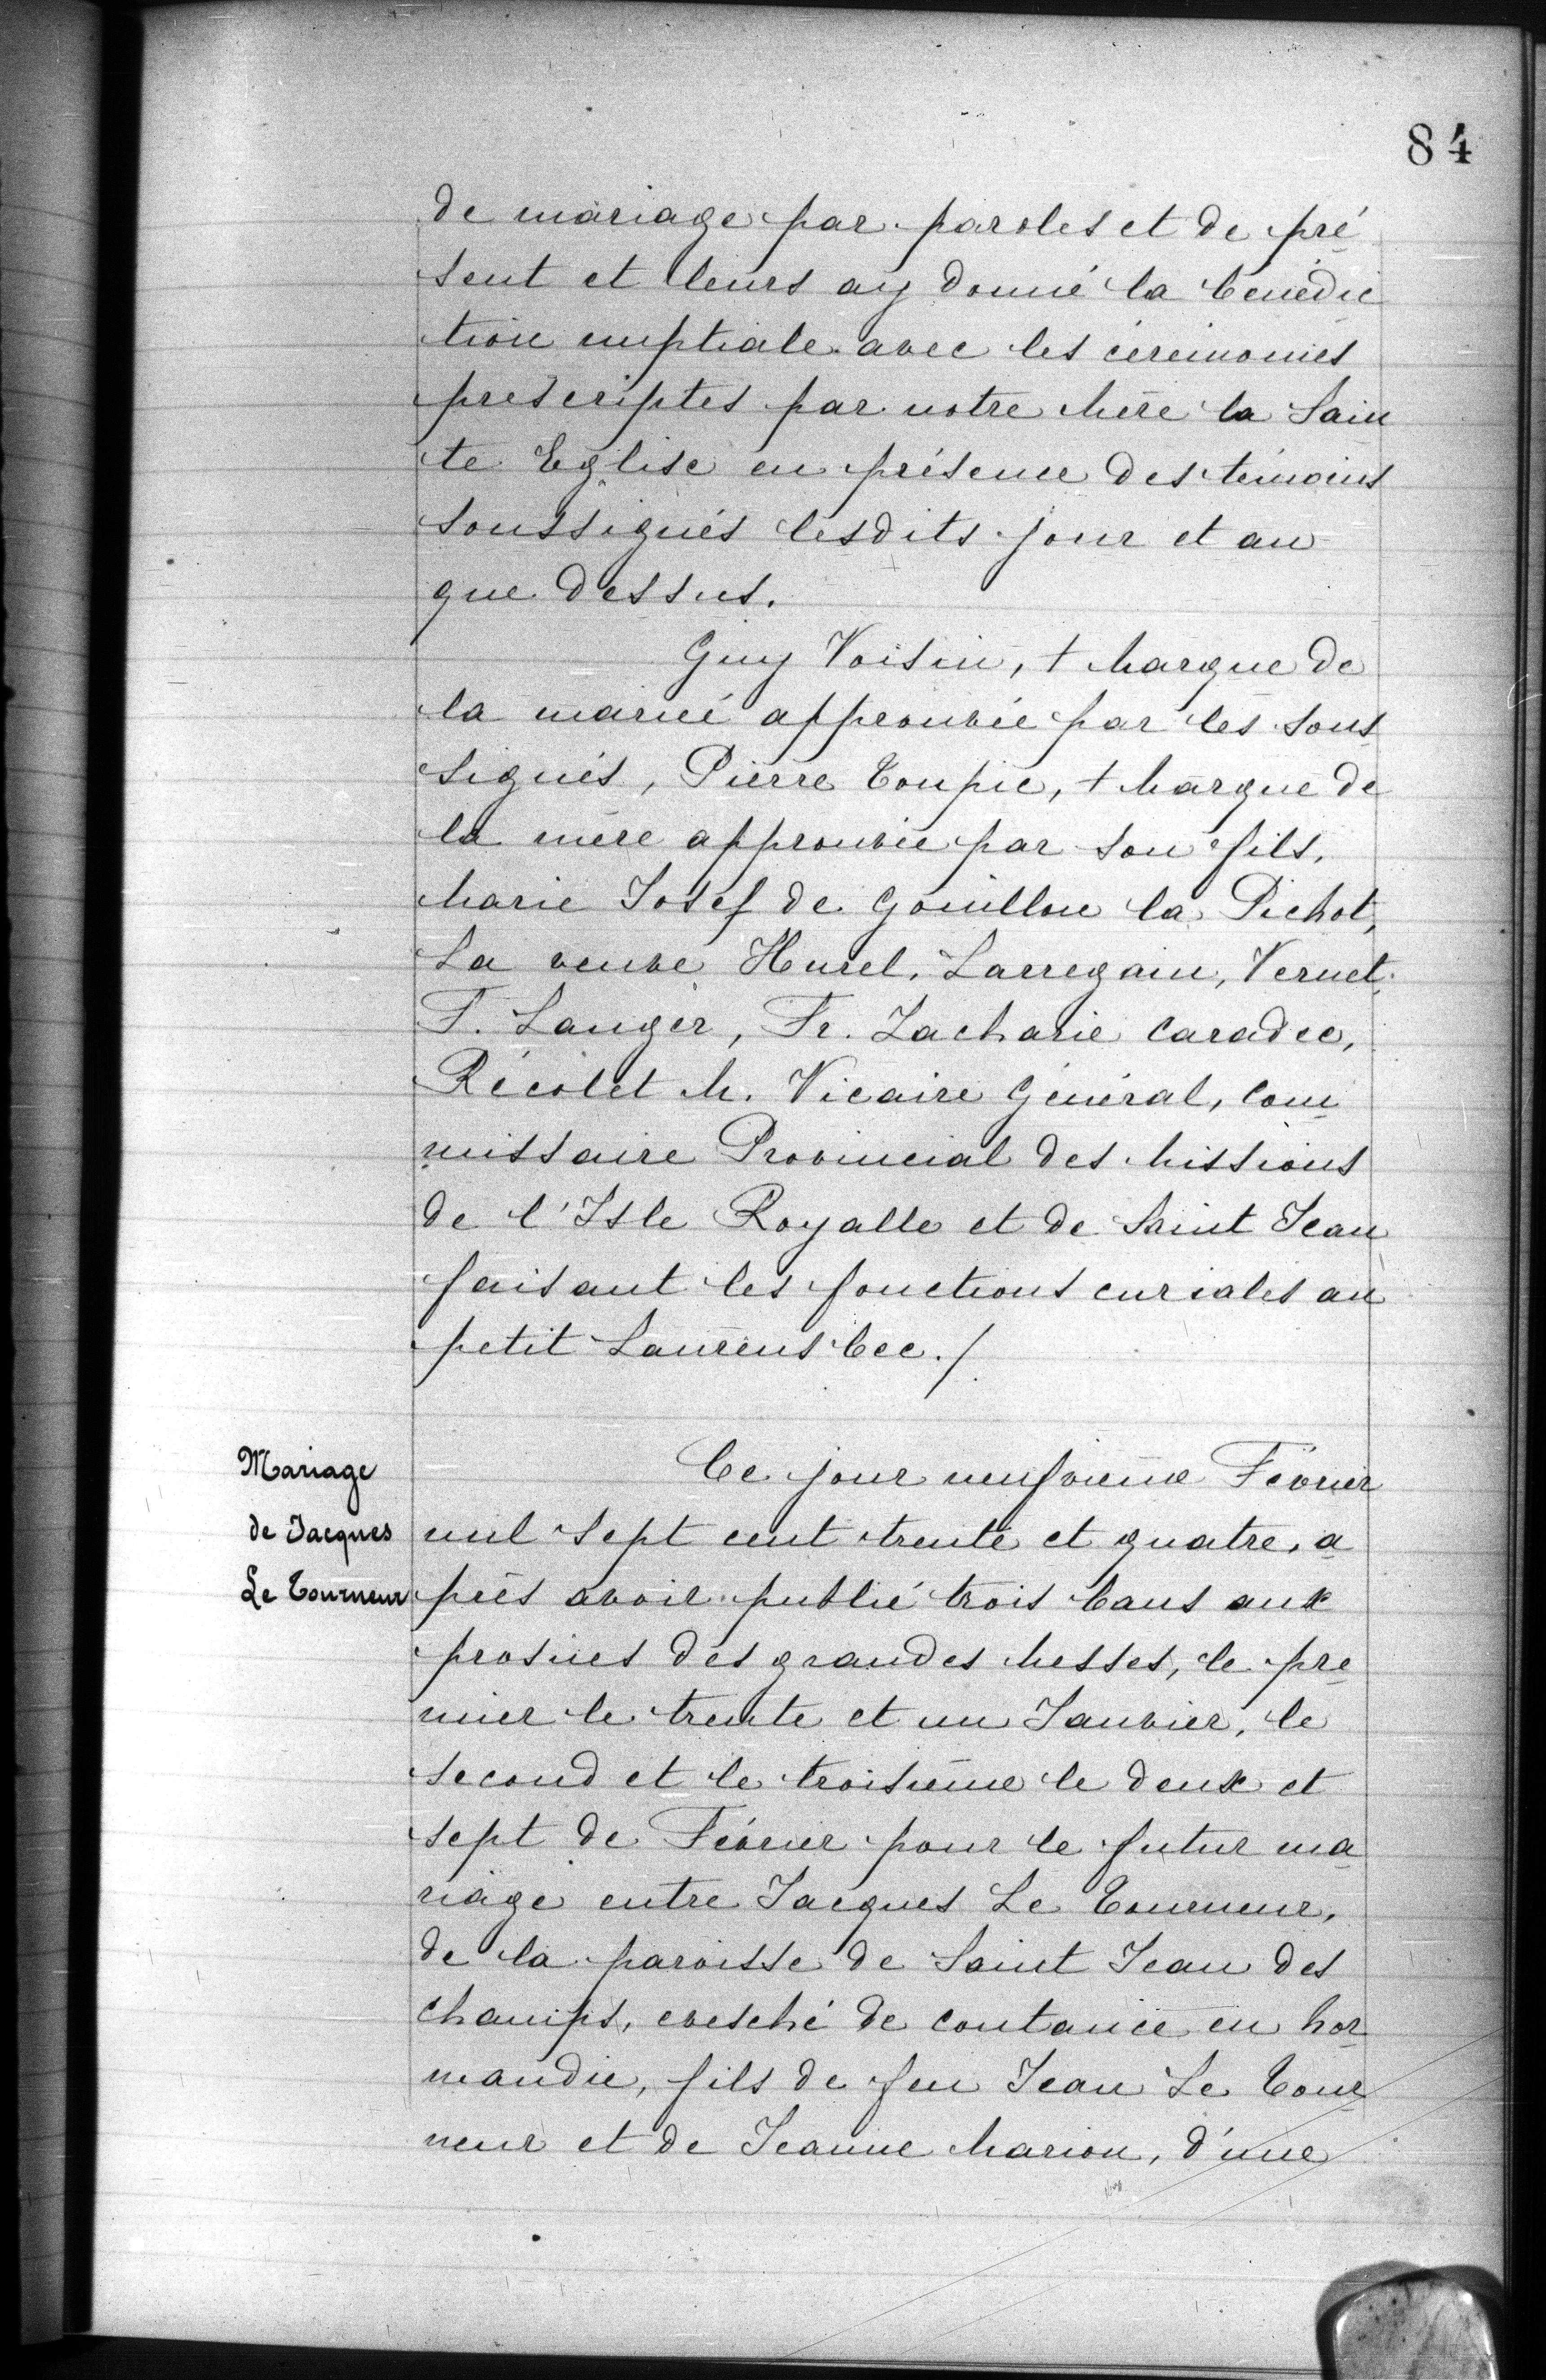 84
de mariage par paroles et de pré
sent et leurs ay donné la bénédic
tion nuptiale avec les cérémonies
prescriptes par notre Mère la Sain
te Eglise en présence des témoins
soussignés lesdits jour et an
que dessus.
Guy Voisin, + Marque de
la mariée approuvée par les sous
signés, Pierre Toupie, + Marque de
la mère approuvée par son fils,
Marie Josef de Gouillon la Pichot,
La veuve Hurel, Larregain, Vernet,
F. Sauger, Fr. Zacharie Caradec,
Récolet M. Vicaire Général, com
missaire Provincial des Missions
de l'Isle Royalle et de Saint Jean
faisant les fonctions curiales au
petit Laurens bec./
Mariage
de Jacques
Le Tourneur
Ce jour neufvième Février
mil sept cent trente et quatre, a
près avoir publié trois bans aux
prosnes des grandes Messes, le pre
mier le trente et un Janvier, le
second et le troisième le deux et
sept de Février pour le futur ma
riage entre Jacques Le Tourneur,
de la paroisse de Saint Jean des
champs, evesché de coutance en Nor
mandie, fils de feu Jean Le Tour
neur et de Jeanne Marion, d'une